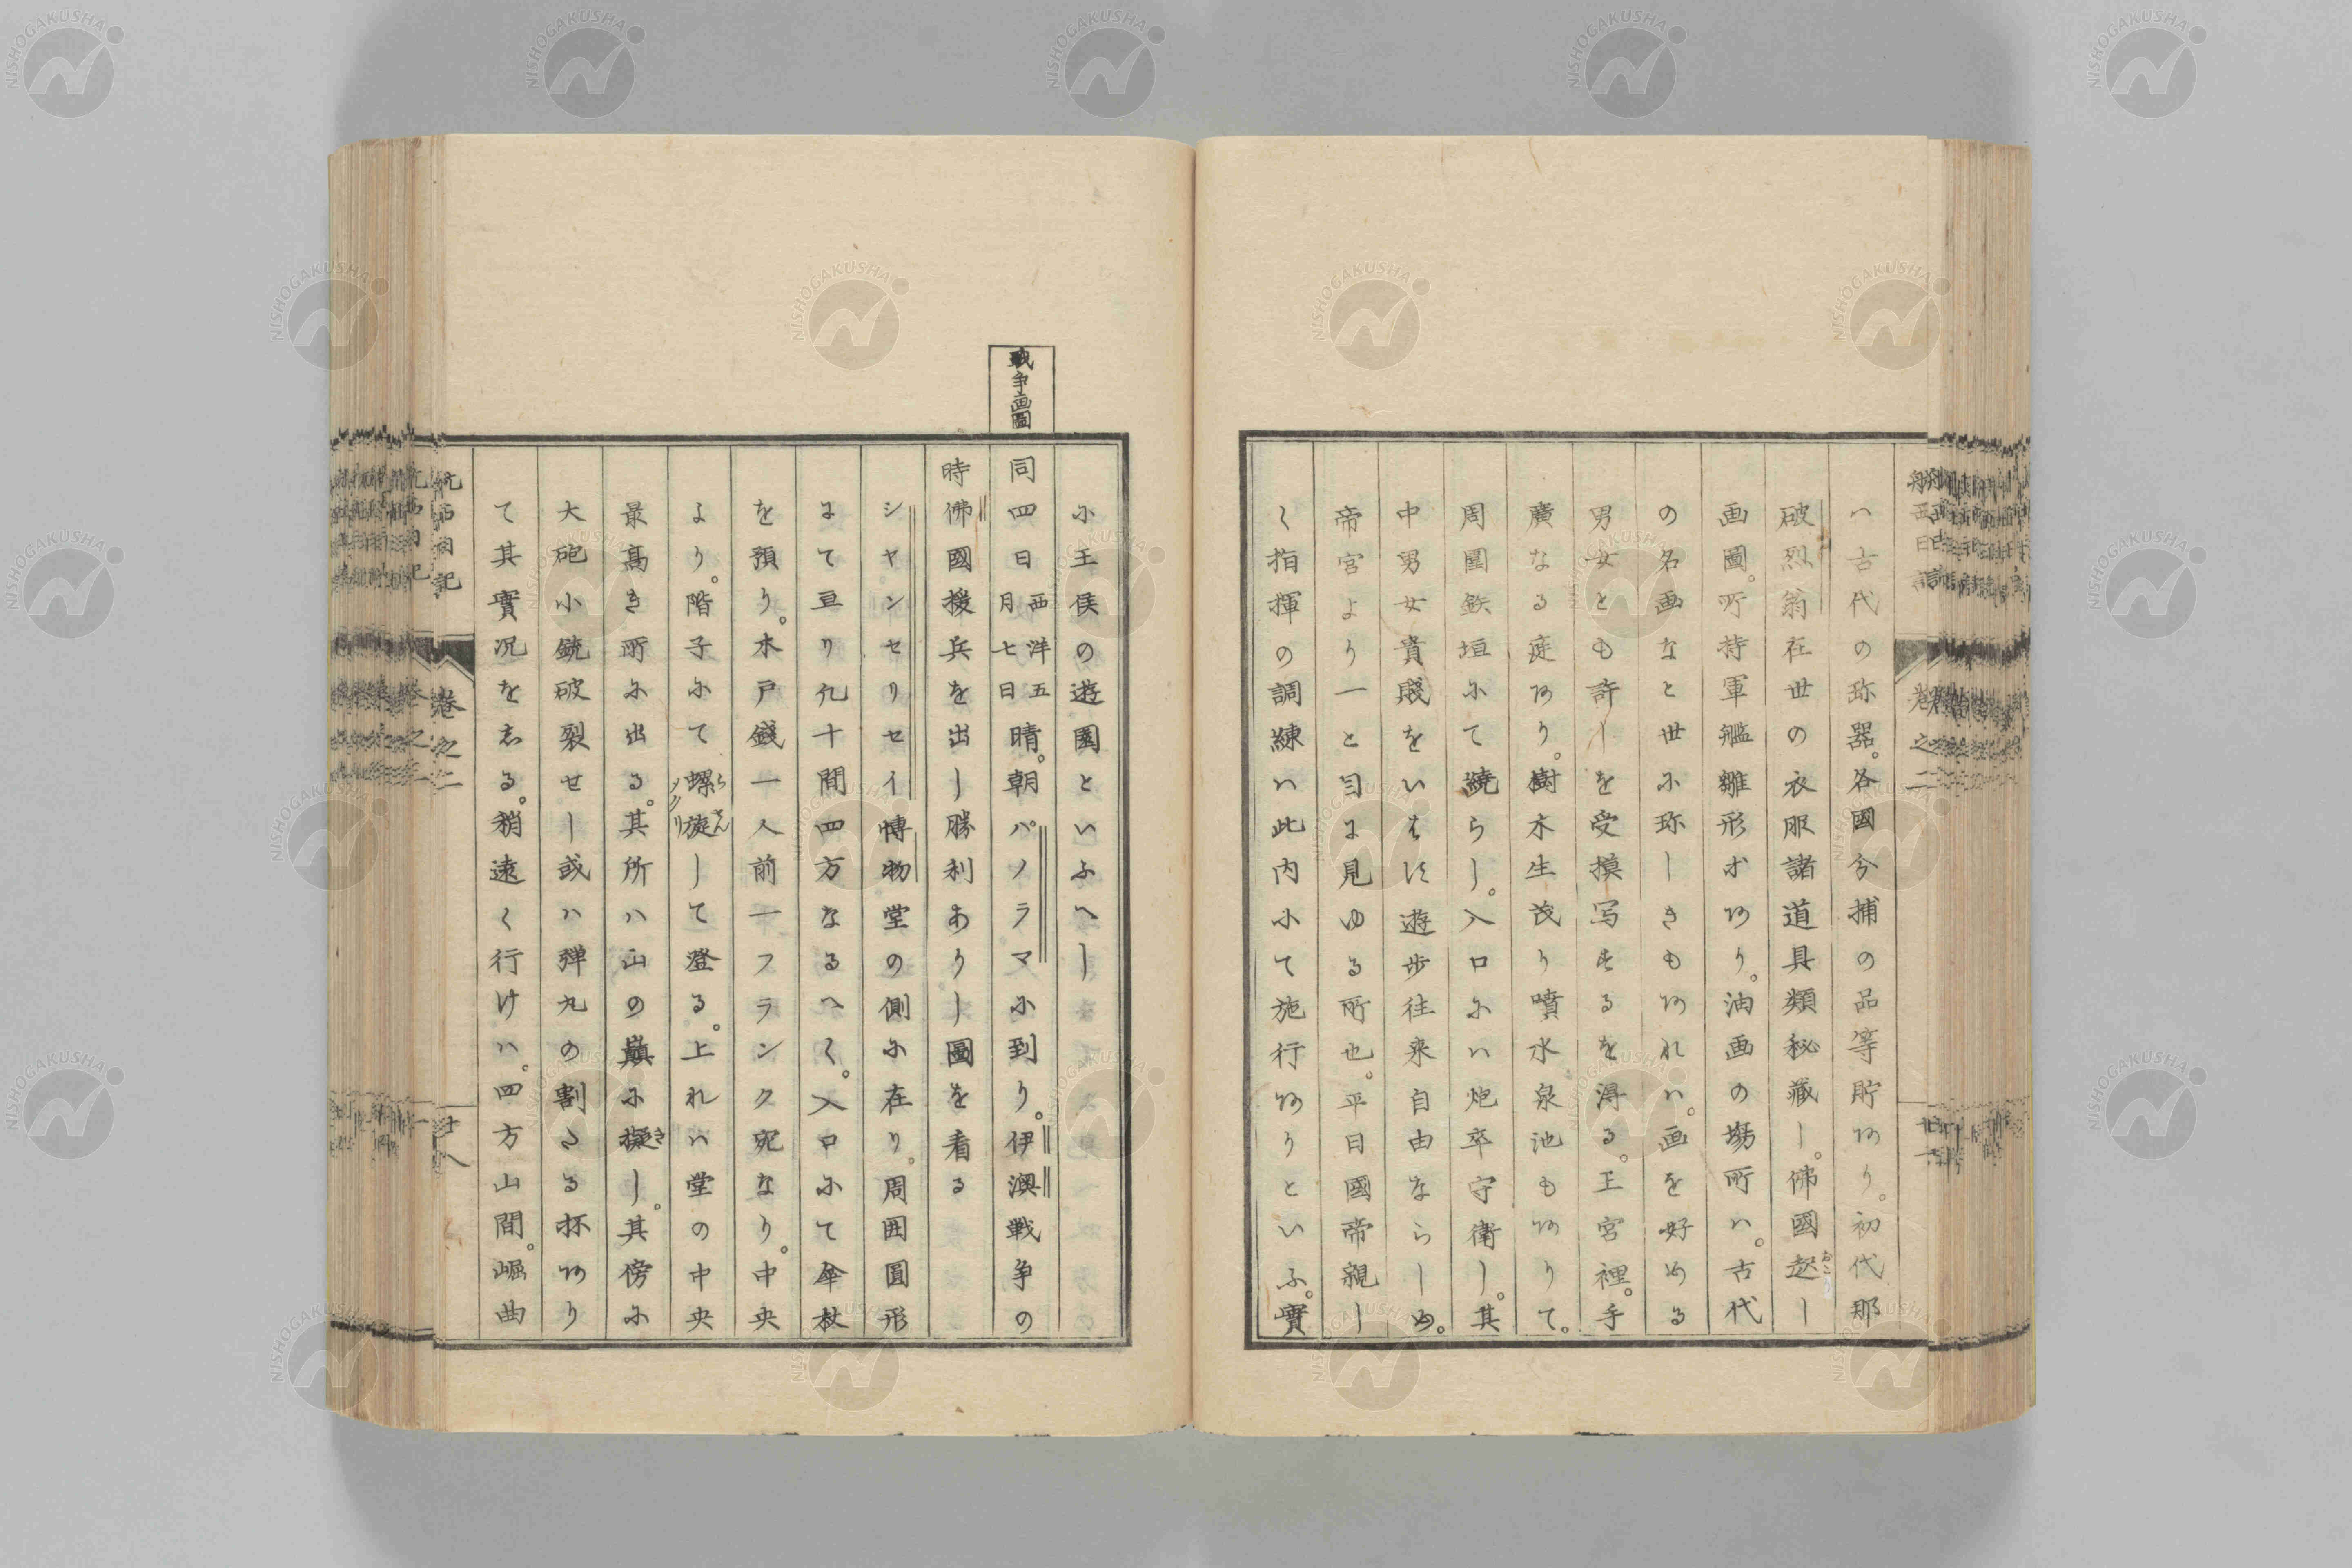 ハ古代の珎器。各國分捕の品等貯あり。初代那
破烈翁在世の衣服諸道具類秘藏し。佛國起し
画圖。所持軍艦雛形才あり。油画の場所ハ。古代
の名画なと世に珎しきもあれハ。画を好める
男女とも許しを受摸写するを得る。王宮裡。手
廣なる庭あり。樹木生茂り噴水泉池もありて。
周圍鉄垣にて繞らし。入口にハ炮卒守衛し。其
中男女貴賎をいはす遊歩往来自由ならしめ。
帝宮より一と目に見ゆる所也。平日國帝親し
く指揮の調練ハ此内にて施行ありといふ。實
に王侯の遊園といふへし
戦争画圖
同四日西洋五月七日晴。朝パノラマに到り。伊澳戦争の
時佛國援兵を出し勝利ありし圖を看る
シヤンセリセイ博物堂の側に在り。周囲圓形
にて亘り九十間四方なるへく。入口にて傘杖
を預り。木戸錢一人前一フランク宛なり。中央
より。階子にて螺旋して登る。上れハ堂の中央
最高き所に出る。其所ハ山の巓に擬し。其傍に
大砲小銃破裂せし或ハ弾丸の割たる抔あり
て其實况を志る。稍遠く行けハ。四方山間。崛曲
航西日記
巻之二
十八